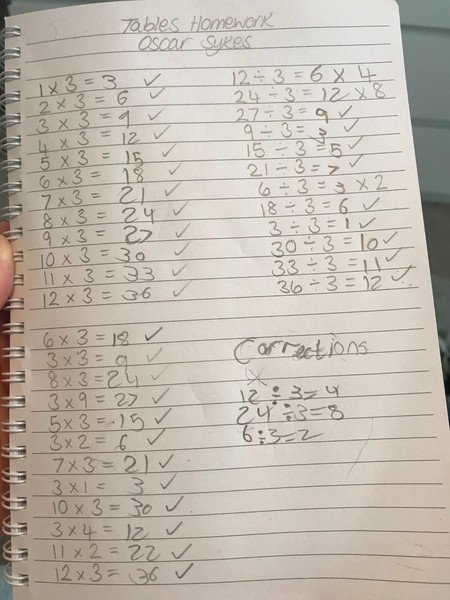 Tables Homework
Oscar Sykes
1 x 3 = 3 ✓
2 x 3 = 6 ✓
3 x 3 = 9 ✓
4 x 3 = 12 ✓
5 x 3 = 15 ✓
6 x 3 = 18 ✓
7 x 3 = 21 ✓
8 x 3 = 24 ✓
9 x 3 = 27 ✓
10 x 3 = 30 ✓
11 x 3 = 33 ✓
12 x 3 = 36 ✓
12 ÷ 3 = 6 X 4
24 ÷ 3 = 12 X 8
27 ÷ 3 = 9 ✓
9 ÷ 3 = 3 ✓
15 ÷ 3 = 5 ✓
21 ÷ 3 = 7 ✓
6 ÷ 3 = 3 X 2
18 ÷ 3 = 6 ✓
3 ÷ 3 = 1 ✓
30 ÷ 3 = 10 ✓
33 ÷ 3 = 11 ✓
36 ÷ 3 = 12 ✓
6 x 3 = 18 ✓
3 x 3 = 9 ✓
8 x 3 = 24 ✓
3 x 9 = 27 ✓
5 x 3 = 15 ✓
3 x 2 = 6 ✓
7 x 3 = 21 ✓
3 x 1 = 3 ✓
10 x 3 = 30 ✓
3 x 4 = 12 ✓
11 x 2 = 22 ✓
12 x 3 = 36 ✓
Corrections
12 ÷ 3 = 4
24 ÷ 3 = 8
6 ÷ 3 = 2